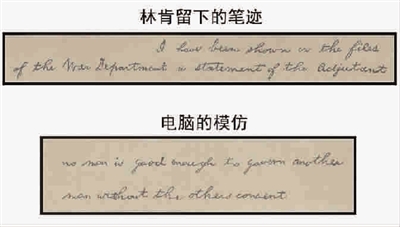 林肯留下的笔迹
I have been shown in the files
of the War Department a statement of the Adjutant
电脑的模仿
no man is good enough to govern another
man without the others consent